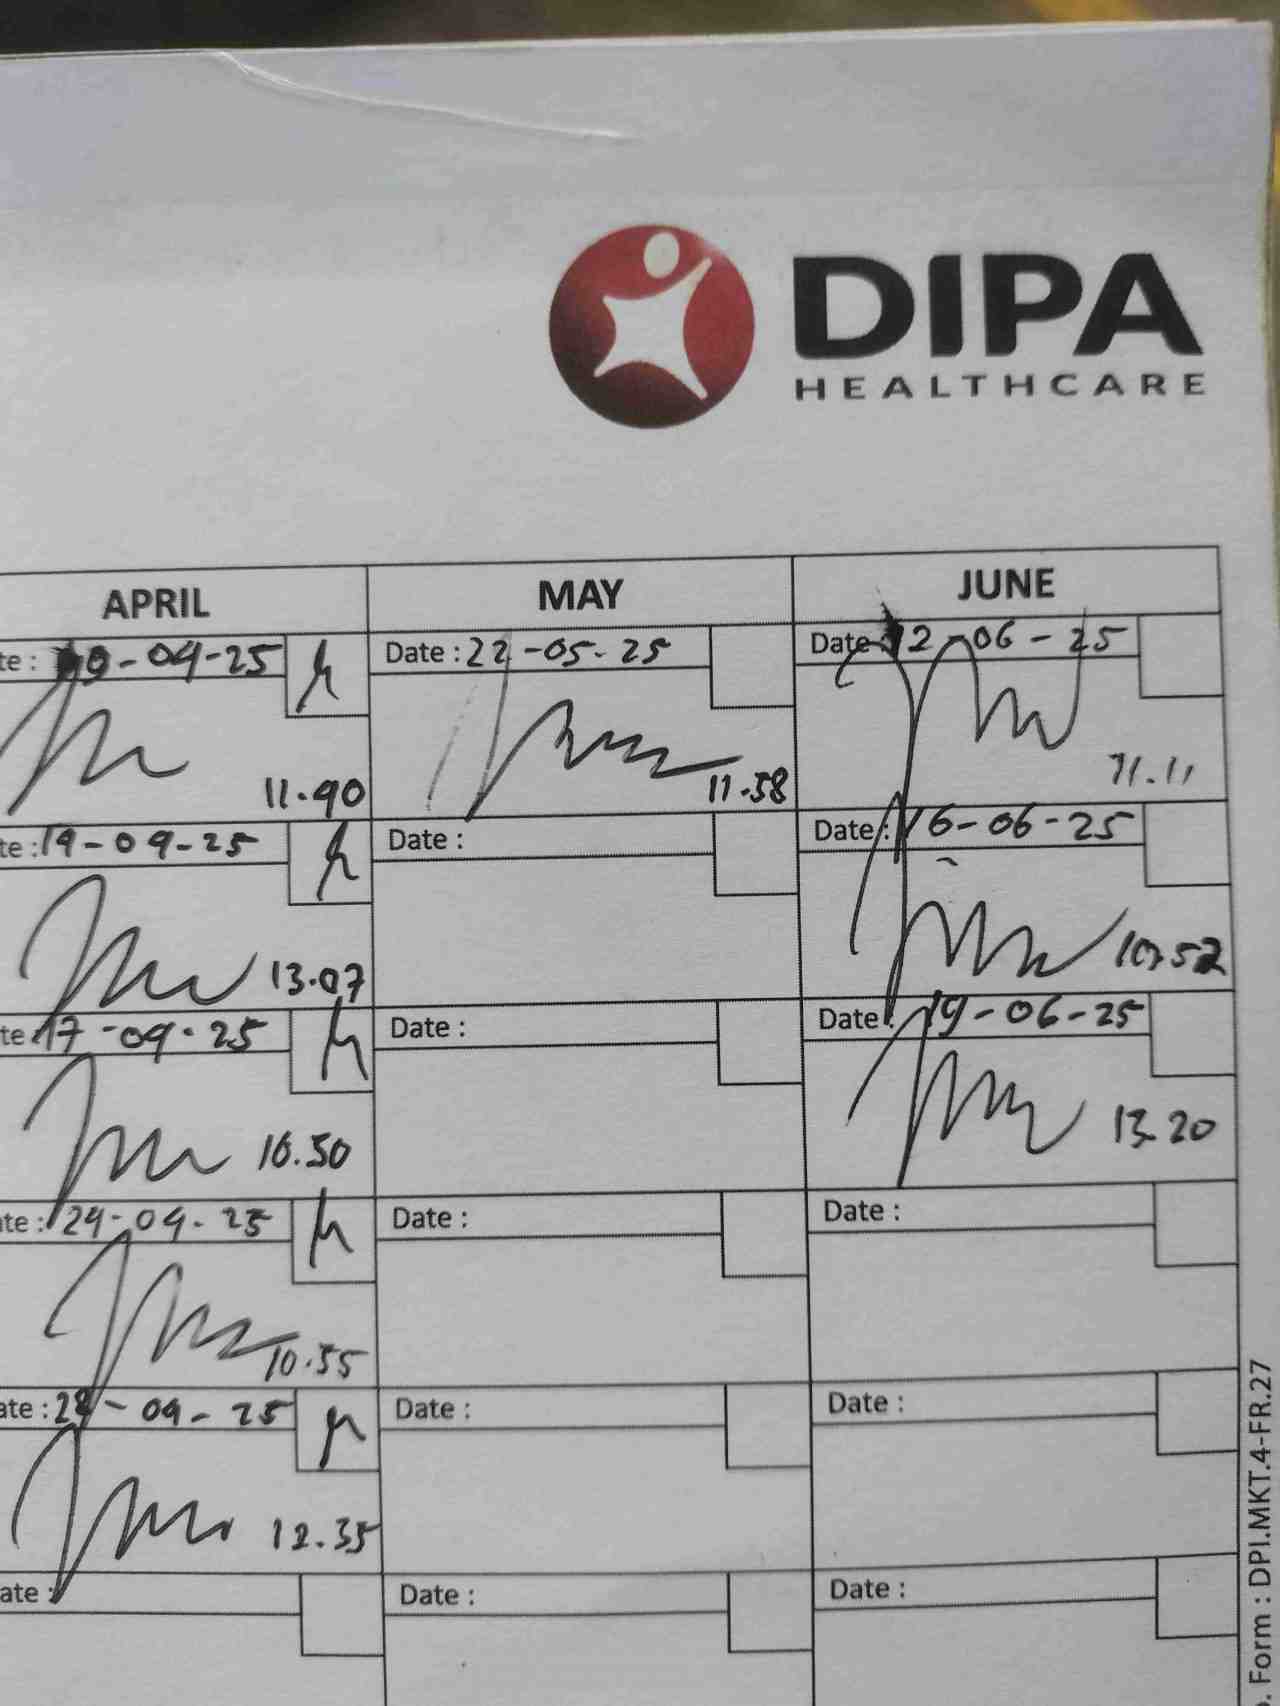 DIPA
HEALTHCARE
APRIL MAY JUNE
te : 0-04-25 Date : 22-05-25 Date : 12-06-25
11.40 11.58 11.11
te : 14-04-25 Date : Date : 16-06-25
13.07 10.52
te 17-04-25 Date : Date : 19-06-25
16.50 13.20
te : 24-04-25 Date : Date :
10.55
ate : 28-04-25 Date : Date :
12.35
ate : Date : Date :
. Form : DPI.MKT.4-FR.27